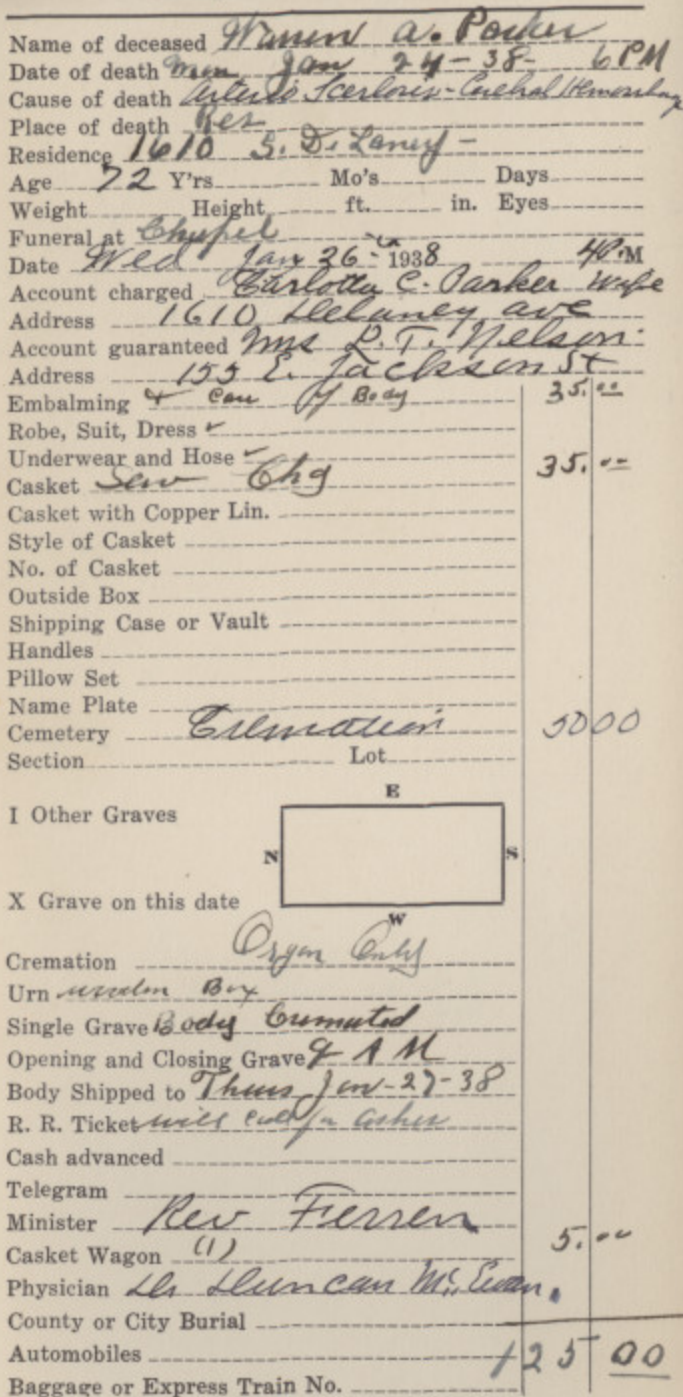 Name of deceased Warren A. Parker
Date of death Mon Jan 24-38- 6 PM
Cause of death Arterio Scerlosis - Cerebral Hemorrhage
Place of death Res
Residence 1610 S. DeLaney -
Age 72 Y'rs Mo's Days
Weight Height ft. in. Eyes
Funeral at Chapel
Date Wed Jan 26 - 1938 4 P.M
Account charged Carlotta C. Parker Wife
Address 1610 Delaney ave
Account guaranteed Mrs D. T. Nelson.
Address 155 E. Jackson St
Embalming & Care of Body 35.00
Robe, Suit, Dress ✓
Underwear and Hose ✓
Casket Serv Chg 35.00
Casket with Copper Lin.
Style of Casket
No. of Casket
Outside Box
Shipping Case or Vault
Handles
Pillow Set
Name Plate
Cemetery Cremation 50 00
Section Lot
E
I Other Graves
N S
X Grave on this date
W
Cremation Organ Only
Urn Box
Single Grave Body Cremated
Opening and Closing Grave 9 A M
Body Shipped to Thurs Jan-27-38
R. R. Ticket will call for ashes
Cash advanced
Telegram
Minister Rev Ferren
Casket Wagon (1) 5.00
Physician Dr Duncan McEwan.
County or City Burial
Automobiles 125 00
Baggage or Express Train No.